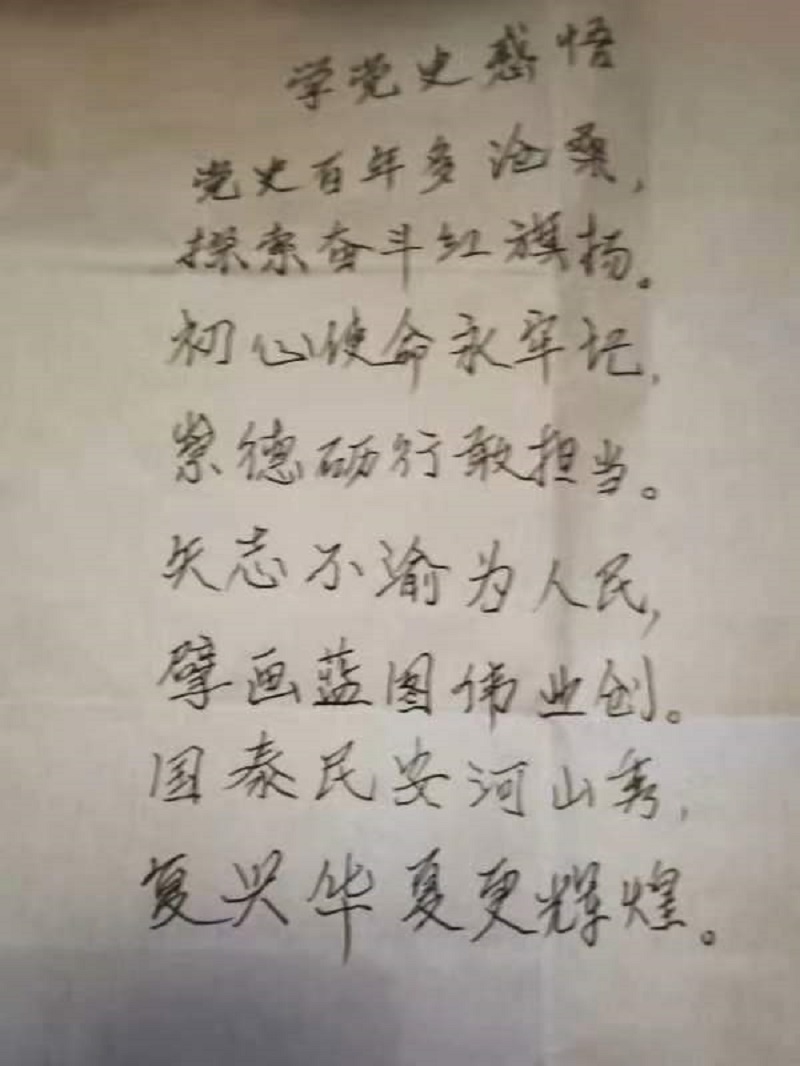 学党史感悟
党史百年多沧桑,
探索奋斗红旗扬。
初心使命永牢记,
崇德砺行敢担当。
矢志不渝为人民,
擘画蓝图伟业创。
国泰民安河山秀,
复兴华夏更辉煌。